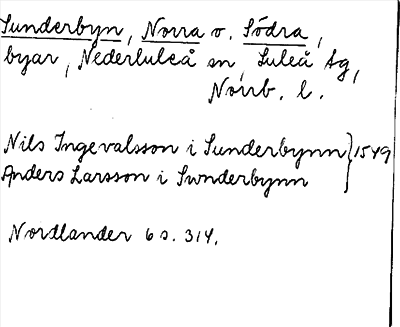 Sunderbyn, Norra o. Södra,
byar, Nederluleå sn, Luleå tg,
Norrb. l.
Nils Ingevalsson i Sunderbynn } 1549
Anders Larsson i Swnderbynn
Nordlander 6 s. 314.